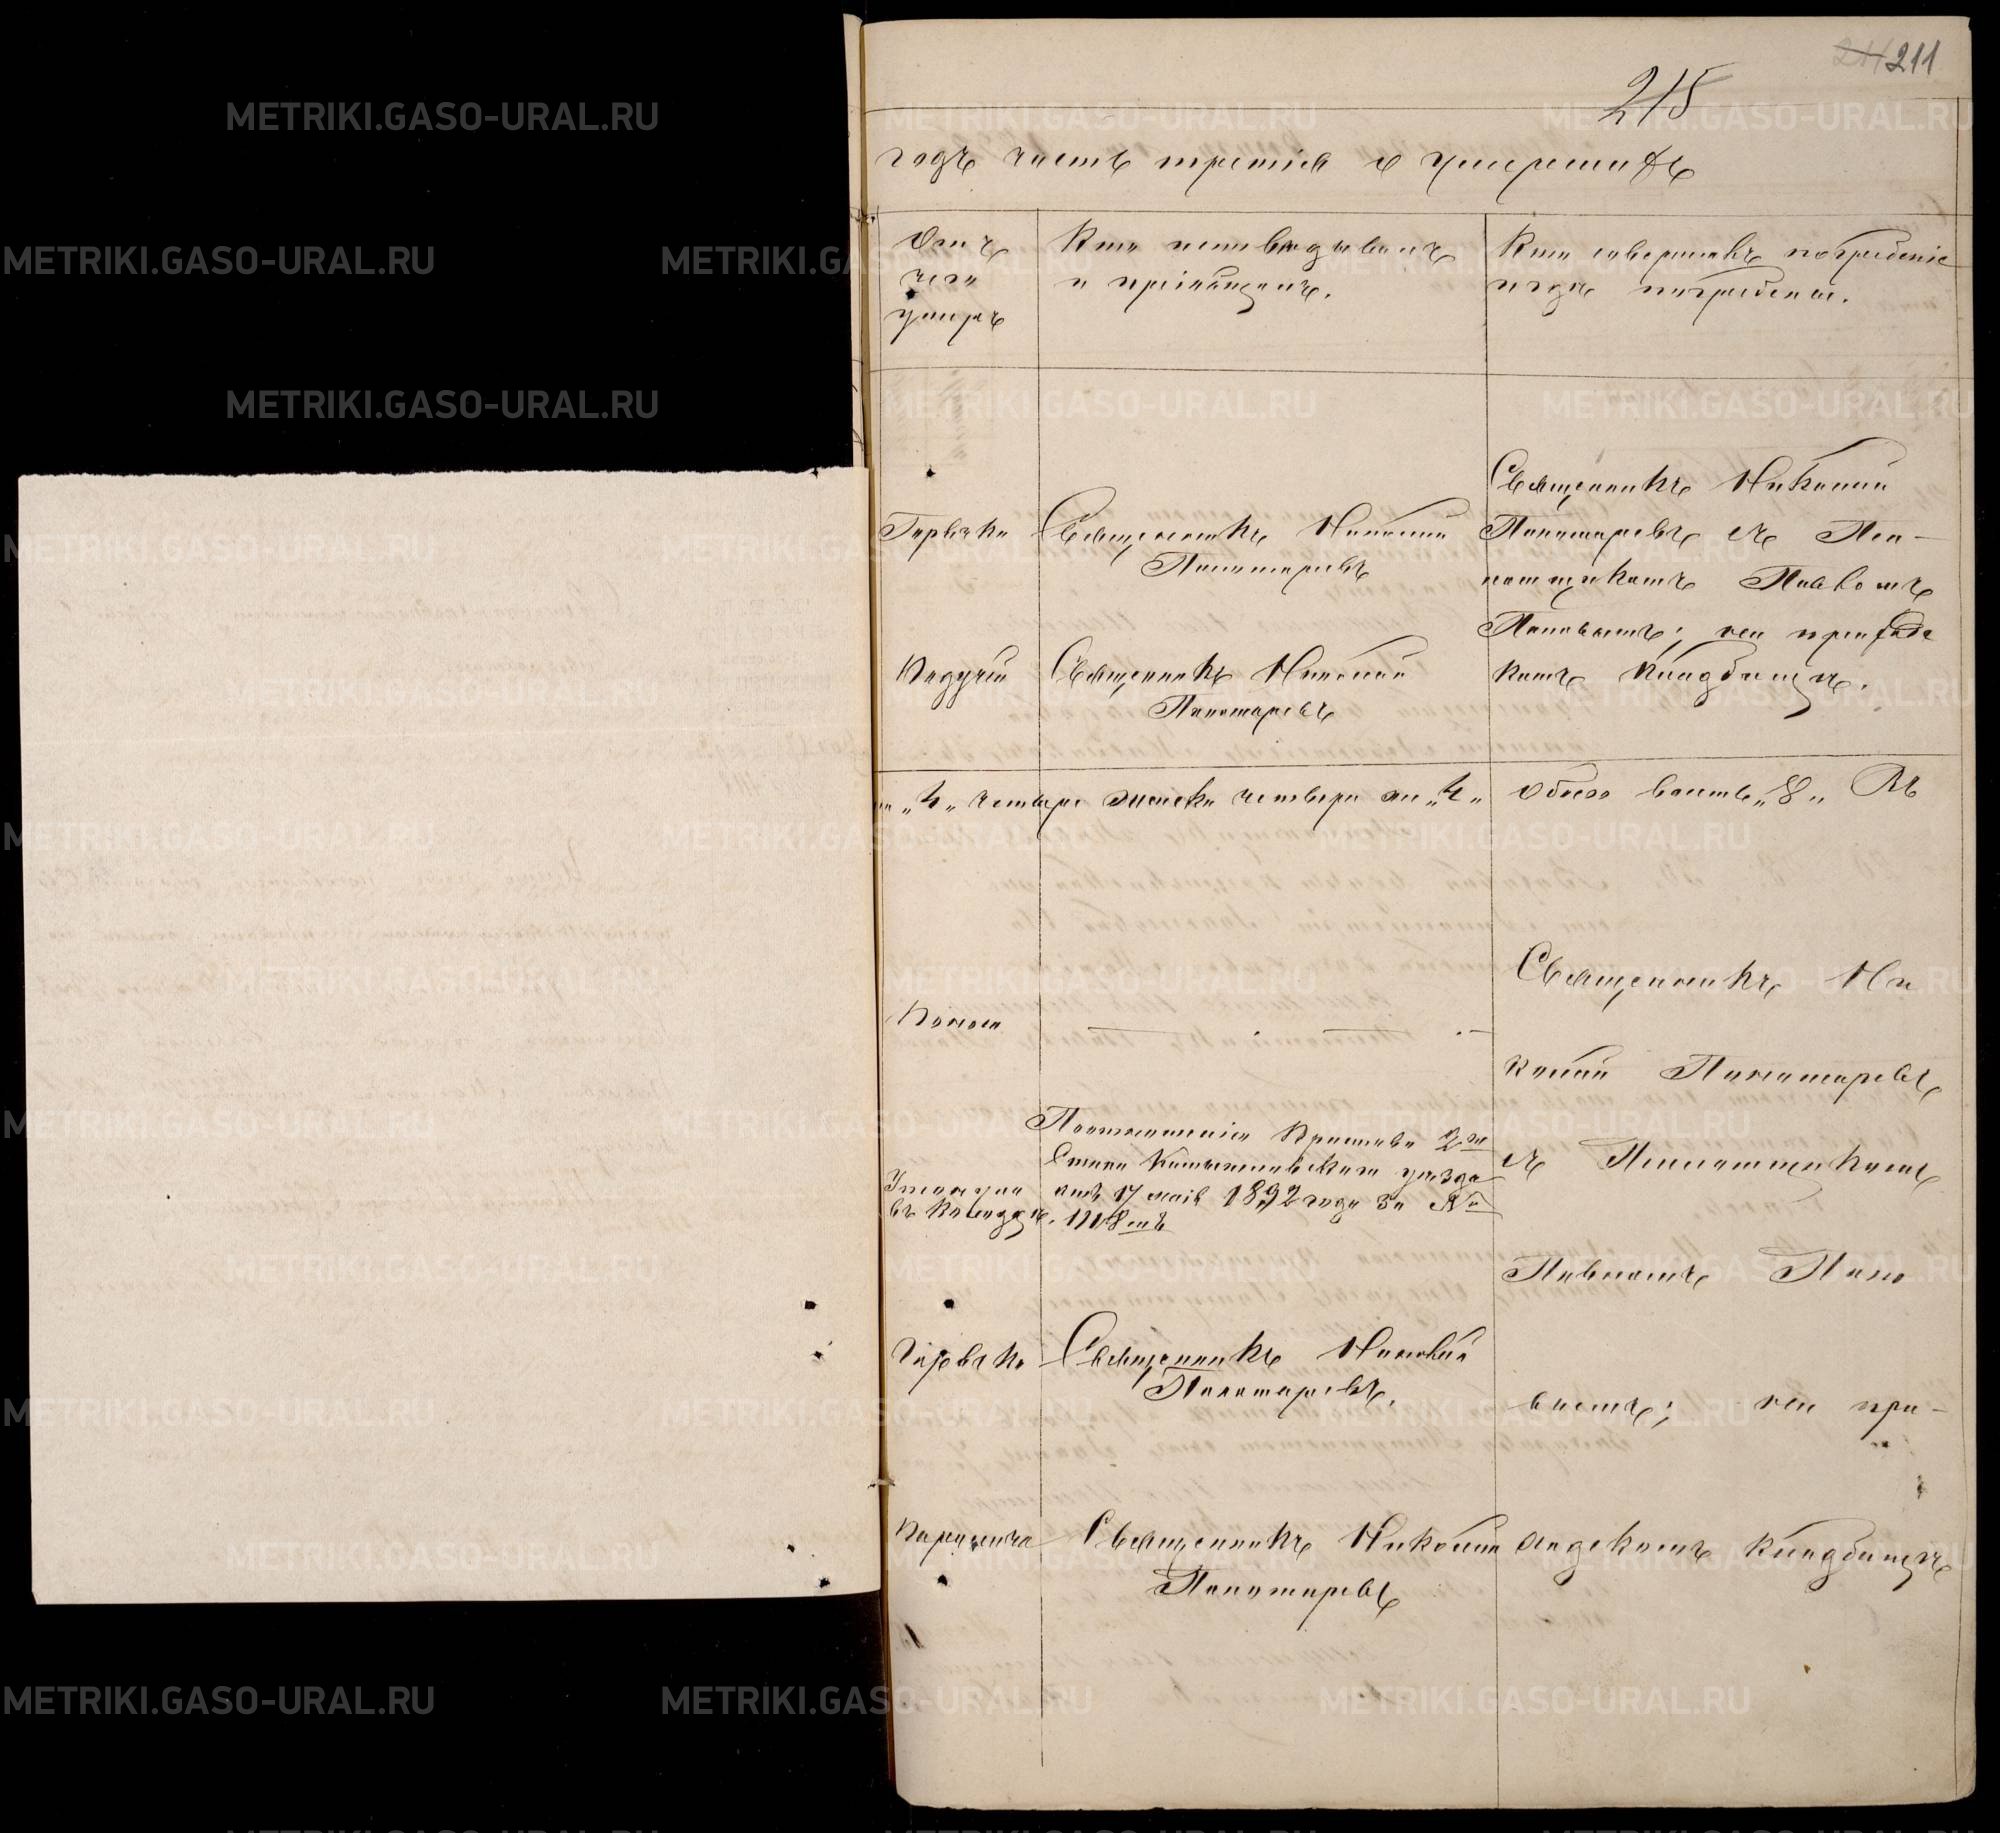 211
215
годъ часть третія о умершихъ
Отъ чего умеръ
Кто исповѣдывалъ и пріобщалъ.
Кто совершалъ погребеніе и гдѣ погребены.
Горячка
Священникъ Николай
Пономаревъ
Священникъ Николай
Пономаревъ съ Псаломщикомъ Павломъ
Поповымъ; на приходскомъ кладбищѣ.
Падучей
Священникъ Николай
Пономаревъ
"4" четыре женска четыре "4" обоего восемь "8" Въ
Поноса
Священникъ Николай Пономаревъ
съ Псаломщикомъ
Павломъ Поповымъ; на приходскомъ кладбищѣ
Утонула въ колодцѣ.
Отношеніе Пристава 2го
Стана Камышловскаго уѣзда
отъ 17 мая 1892 года за №
1118мъ
Горячка
Священникъ Николай
Пономаревъ.
Паралича
Священникъ Николай
Пономаревъ
METRIKI.GASO-URAL.RU